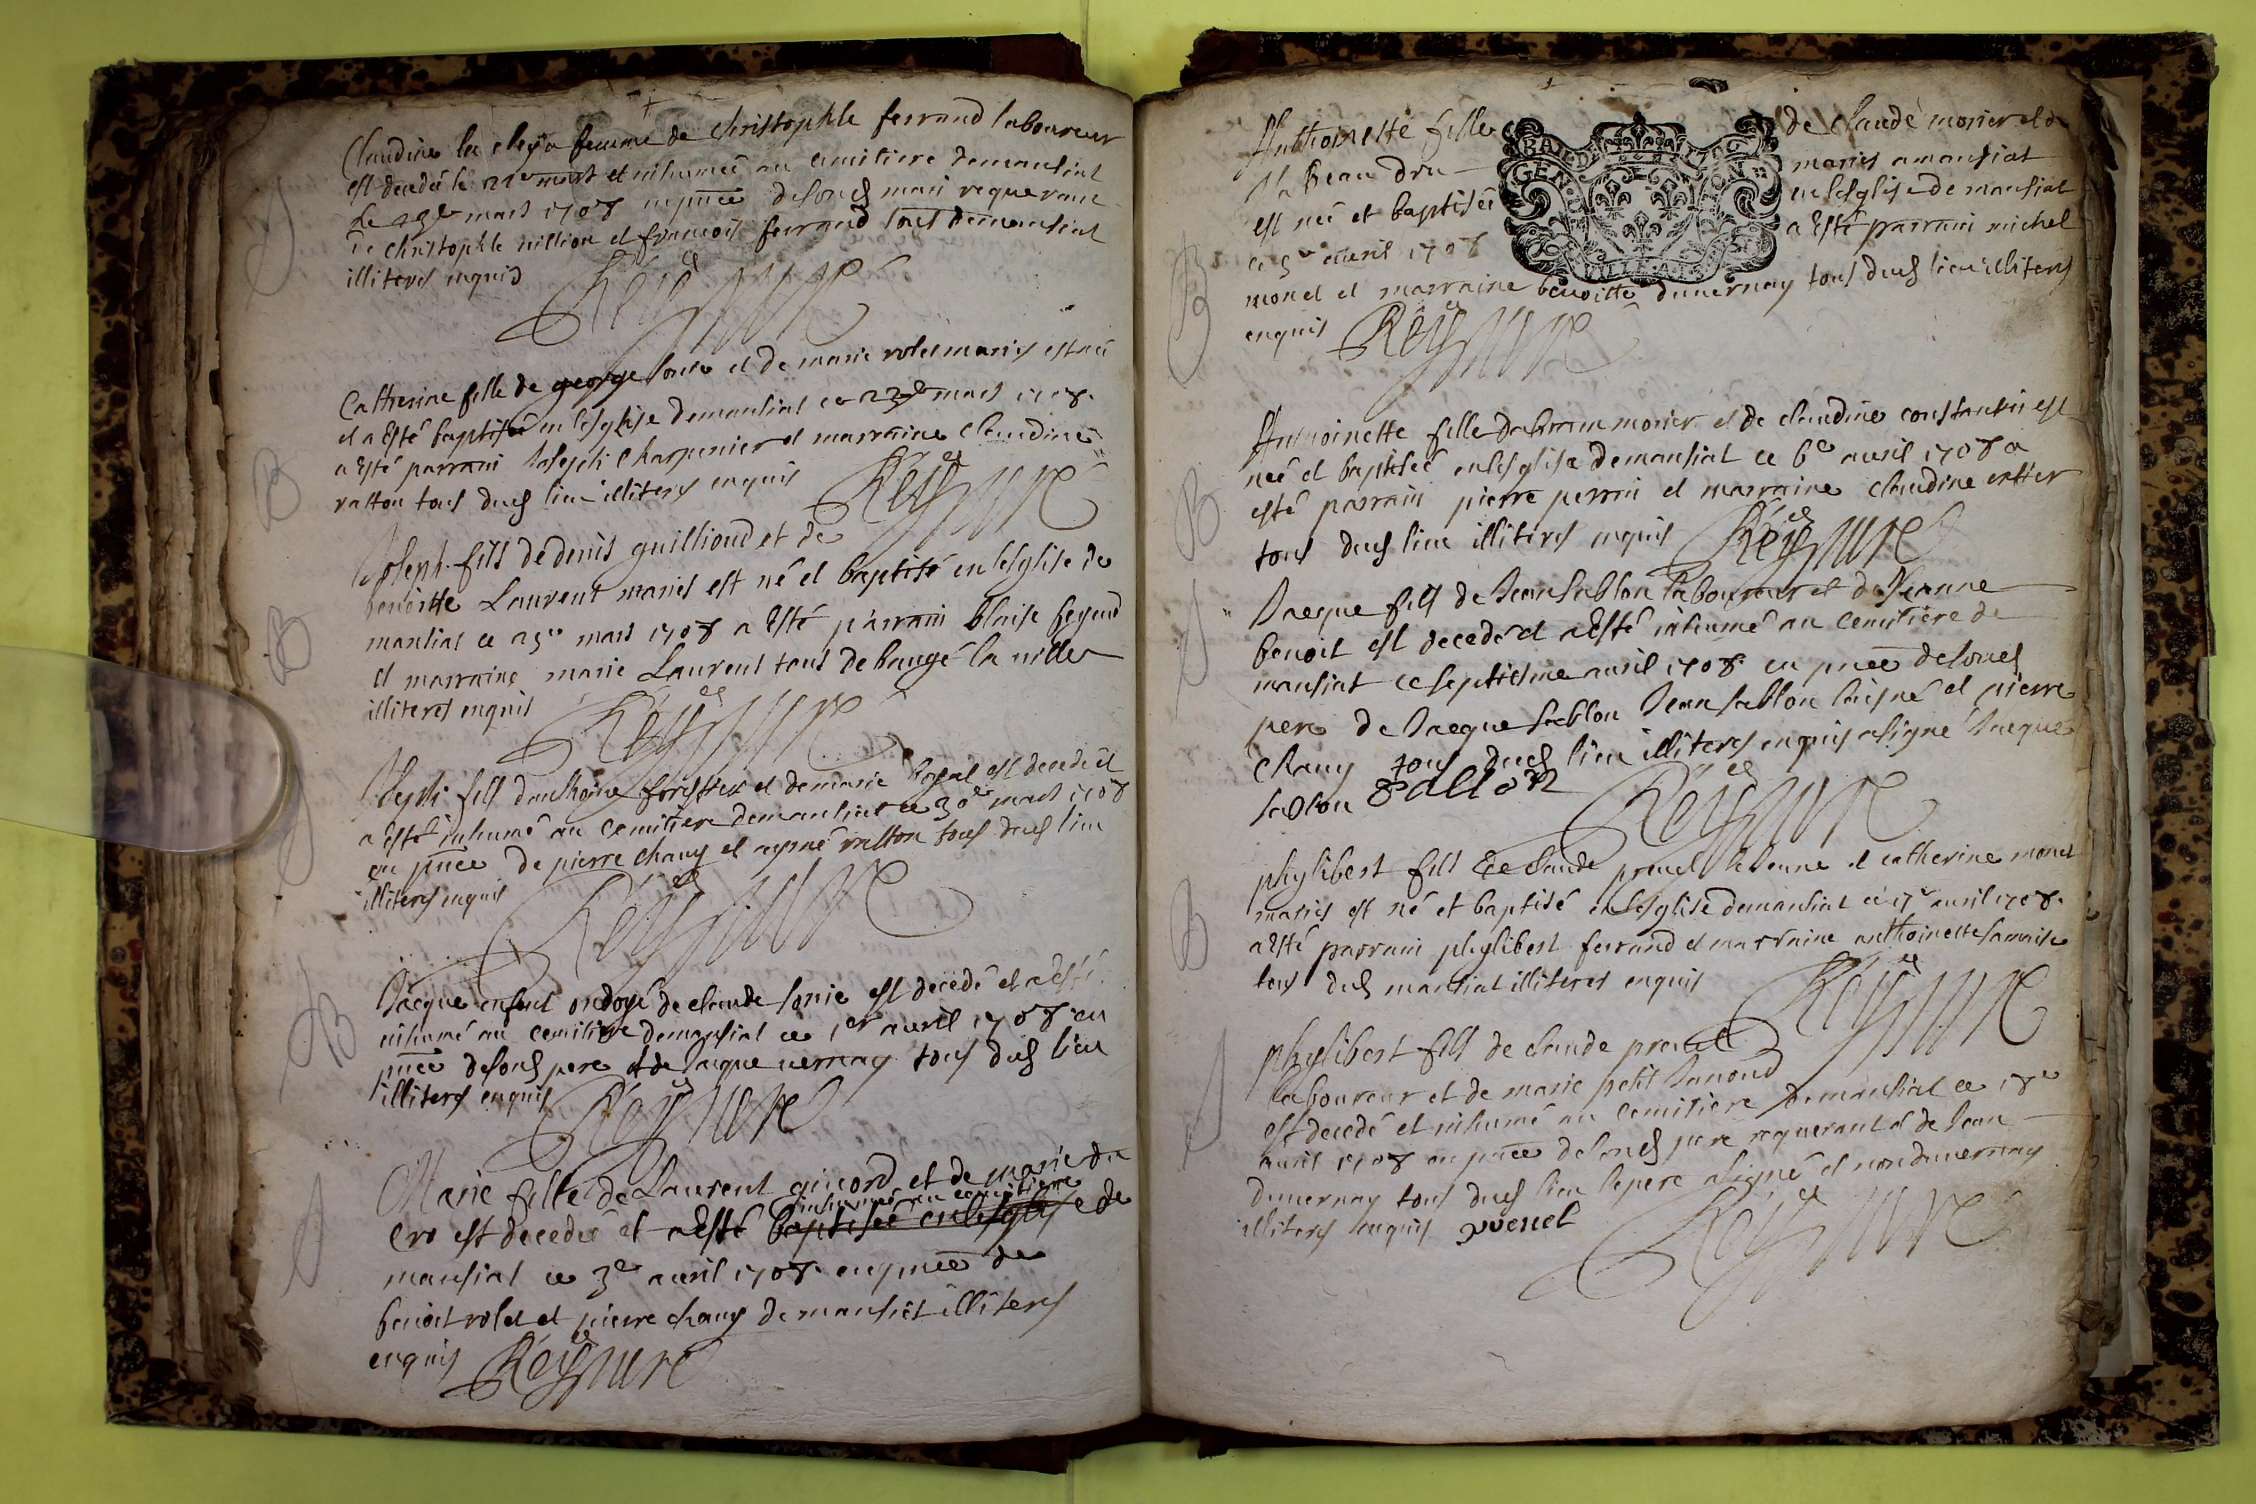 Claudine la femme de Christophle ferrand laboureur
est decedée le 22e mars et inhumée au cemitiere demansiat
le 23e mars 1708 en pnce desond mari requerant
de Christophle million et francois ferrand tous demansiat
illiteres enquis
Reyssure
Catherine fille de george et de marie rolet mariés est née
et a esté baptisé en lesglise demansiat ce 23e mars 1708.
a esté parrain Joseph Charpenier et marraine Claudine
ratton tous dud lieu illiteres enquis Reyssure
Joseph fils de denis guilliond et de
benoitte Laurent mariés est né et baptisé en lesglise de
mansiat ce 25e mars 1708 a Esté parrain blaise
et marraine marie Laurent tous de baugé la ville
illiteres enquis Reyssure
Joseph fils danthoine forestier et demarie est decedé et
a esté inhumé au cemitiere demansiat ce 30e mars 1708
en pnce de pierre chany et aymé ratton tous dud lieu
illiteres enquis Reyssure
Jacque enfent ondoyé de claude est decedé et a esté
inhumé au cemitiere demansiat ce 1er avril 1708 en
pnce desond pere et de Jaque vernay tous dud lieu
illiteres enquis Reyssure
Marie fille de Laurent et de marie du
inhumée au cemitiere
cro est decedée et a Esté baptisée en lesglise de
mansiat ce 3e avril 1708 en pnce de
benoit rolet et pierre chany de mansiat illiteres
enquis Reyssure
Anthoinette fille de claude monier et de
beau dru mariés a mansiat
est née et baptisée en lesglise de mansiat
ce 5e avril 1708 a Esté parrain michel
BAI D
GEN ION
monet et marraine benoitte duvernay tous dud lieu illiteres
enquis Reyssure
Antoinette fille monier et de claudine constantin est
née et baptisée en lesglise demansiat ce 6e avril 1708 a
esté parrain pierre perrin et marraine claudine
tous dud lieu illiteres enquis Reyssure
Jacque fils de Jean sablon laboureur et de Jeanne
benoit est decedé et a Esté inhumé au cemitiere de
mansiat ce septiesme avril 1708 en pnce desond
pere de Jacque sablon Jean sablon laisné et pierre
Chany tous dud lieu illiteres enquis a signé Jacque
sablon Sablon Reyssure
phylibert fils de claude le Jeune et catherine monet
mariés est né et baptisé en lesglise demansiat ce 17e avril 1708.
a Esté parrain phylibert ferrand et marraine anthoinette
tous dud mansiat illiteres enquis Reyssure
phylibert fils de claude
laboureur et de marie petit Janond
est decedé et inhumé au cemitiere demansiat ce 18e
avril 1708 en pnce desond pere requerant et de Jean
duvernay tous dud lieu le pere a signé et non duvernay
illiteres enquis Reyssure